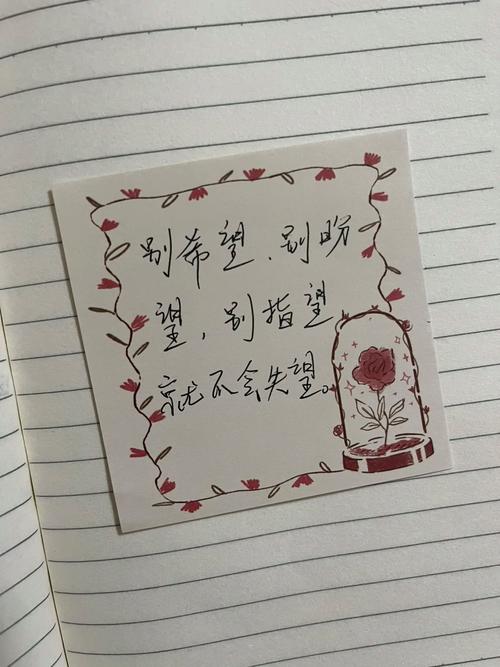 别希望、别盼
望，别指望
就不会失望。